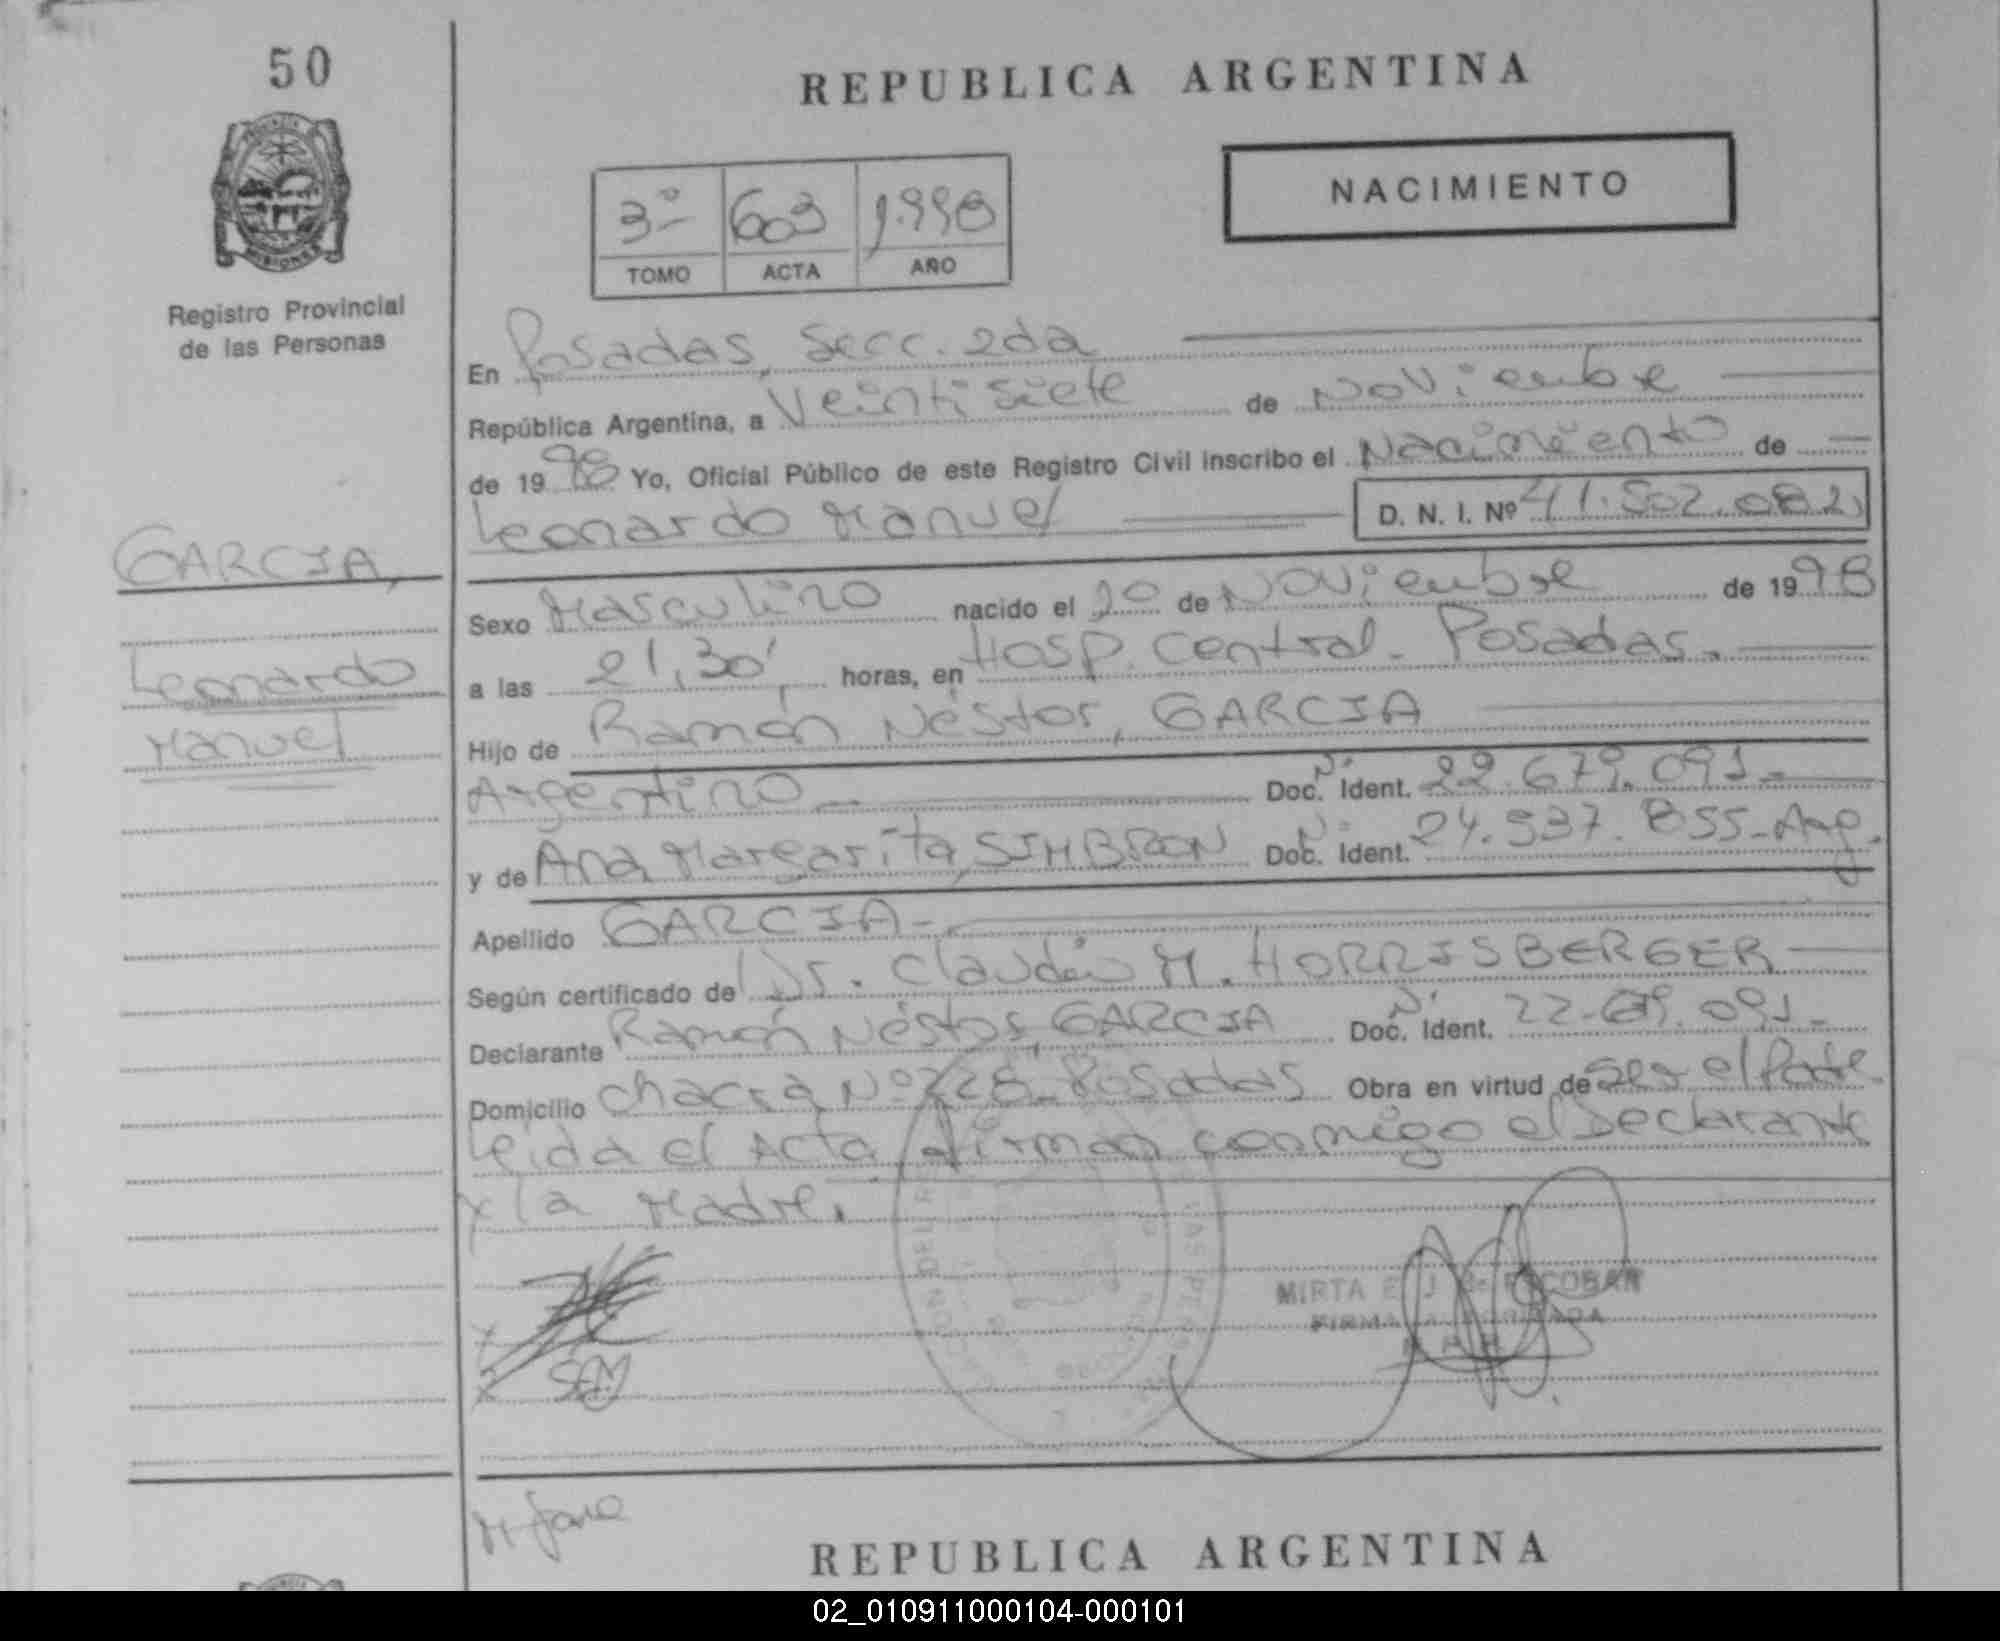 50
REPUBLICA ARGENTINA
NACIMIENTO
3º 603 1.998
TOMO ACTA AÑO
Registro Provincial
de las Personas
En Posadas, Secc. 2da
República Argentina, a Veintisiete de Noviembre
de 1998 Yo, Oficial Público de este Registro Civil inscribo el Nacimiento de
Leonardo Manuel D. N. I. Nº 41.502.082
GARCIA,
Leonardo
Manuel
Sexo Masculino nacido el de Noviembre de 1998
a las 21,30' horas, en Hosp. Central - Posadas.
Hijo de Ramón Néstor, GARCIA
Argentino Nº Doc. Ident. 22.679.091-
y de Ana Margarita, SIMBRON Nº Doc. Ident. 24.937.855-Arg.
Apellido GARCIA-
Según certificado de Dr. Claudio M. HORRISBERGER
Declarante Ramón Néstor, GARCIA Nº Doc. Ident. 22.679.091-
Domicilio Chacra Nº - Posadas Obra en virtud de Ser el Padre
Leida el Acta, firman conmigo el Declarante
y la Madre.
MIRTA E. J. ESCOBAR
FIRMA AUTORIZADA
REPUBLICA ARGENTINA
02_010911000104-000101